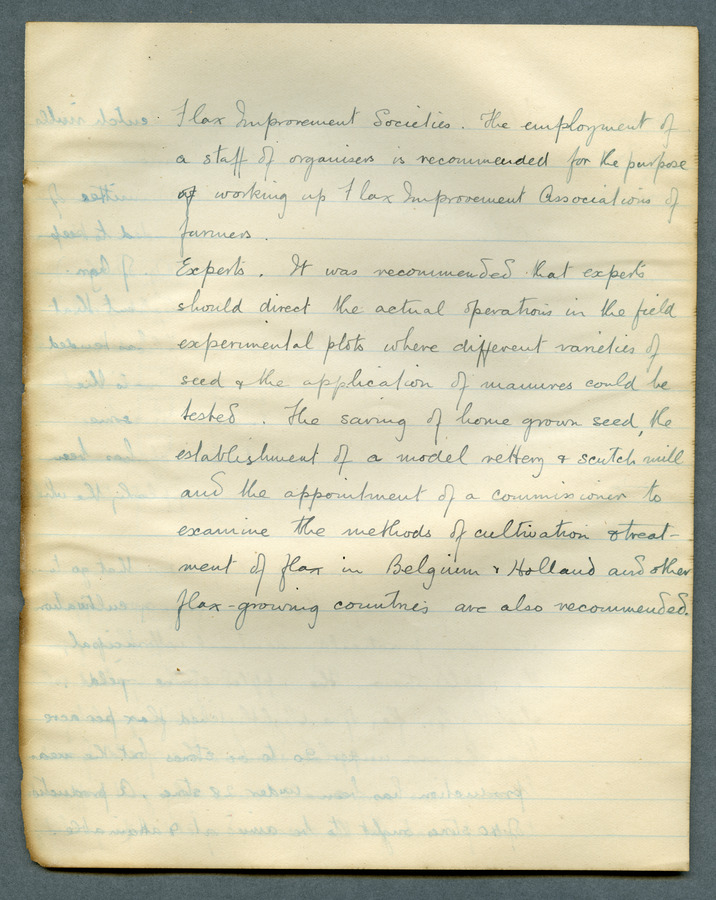 Flax Improvement Societies. The employment of
a staff of organisers is recommended for the purpose
of working up Flax Improvement Associations of
farmers.
Experts. It was recommended that experts
should direct the actual operations in the field
experimental plots where different varieties of
seed & the application of manures could be
tested. The saving of home grown seed, the
establishment of a model rettery & scutch mill
and the appointment of a commissioner to
examine the methods of cultivation & treat-
ment of flax in Belgium & Holland and other
flax-growing countries are also recommended.